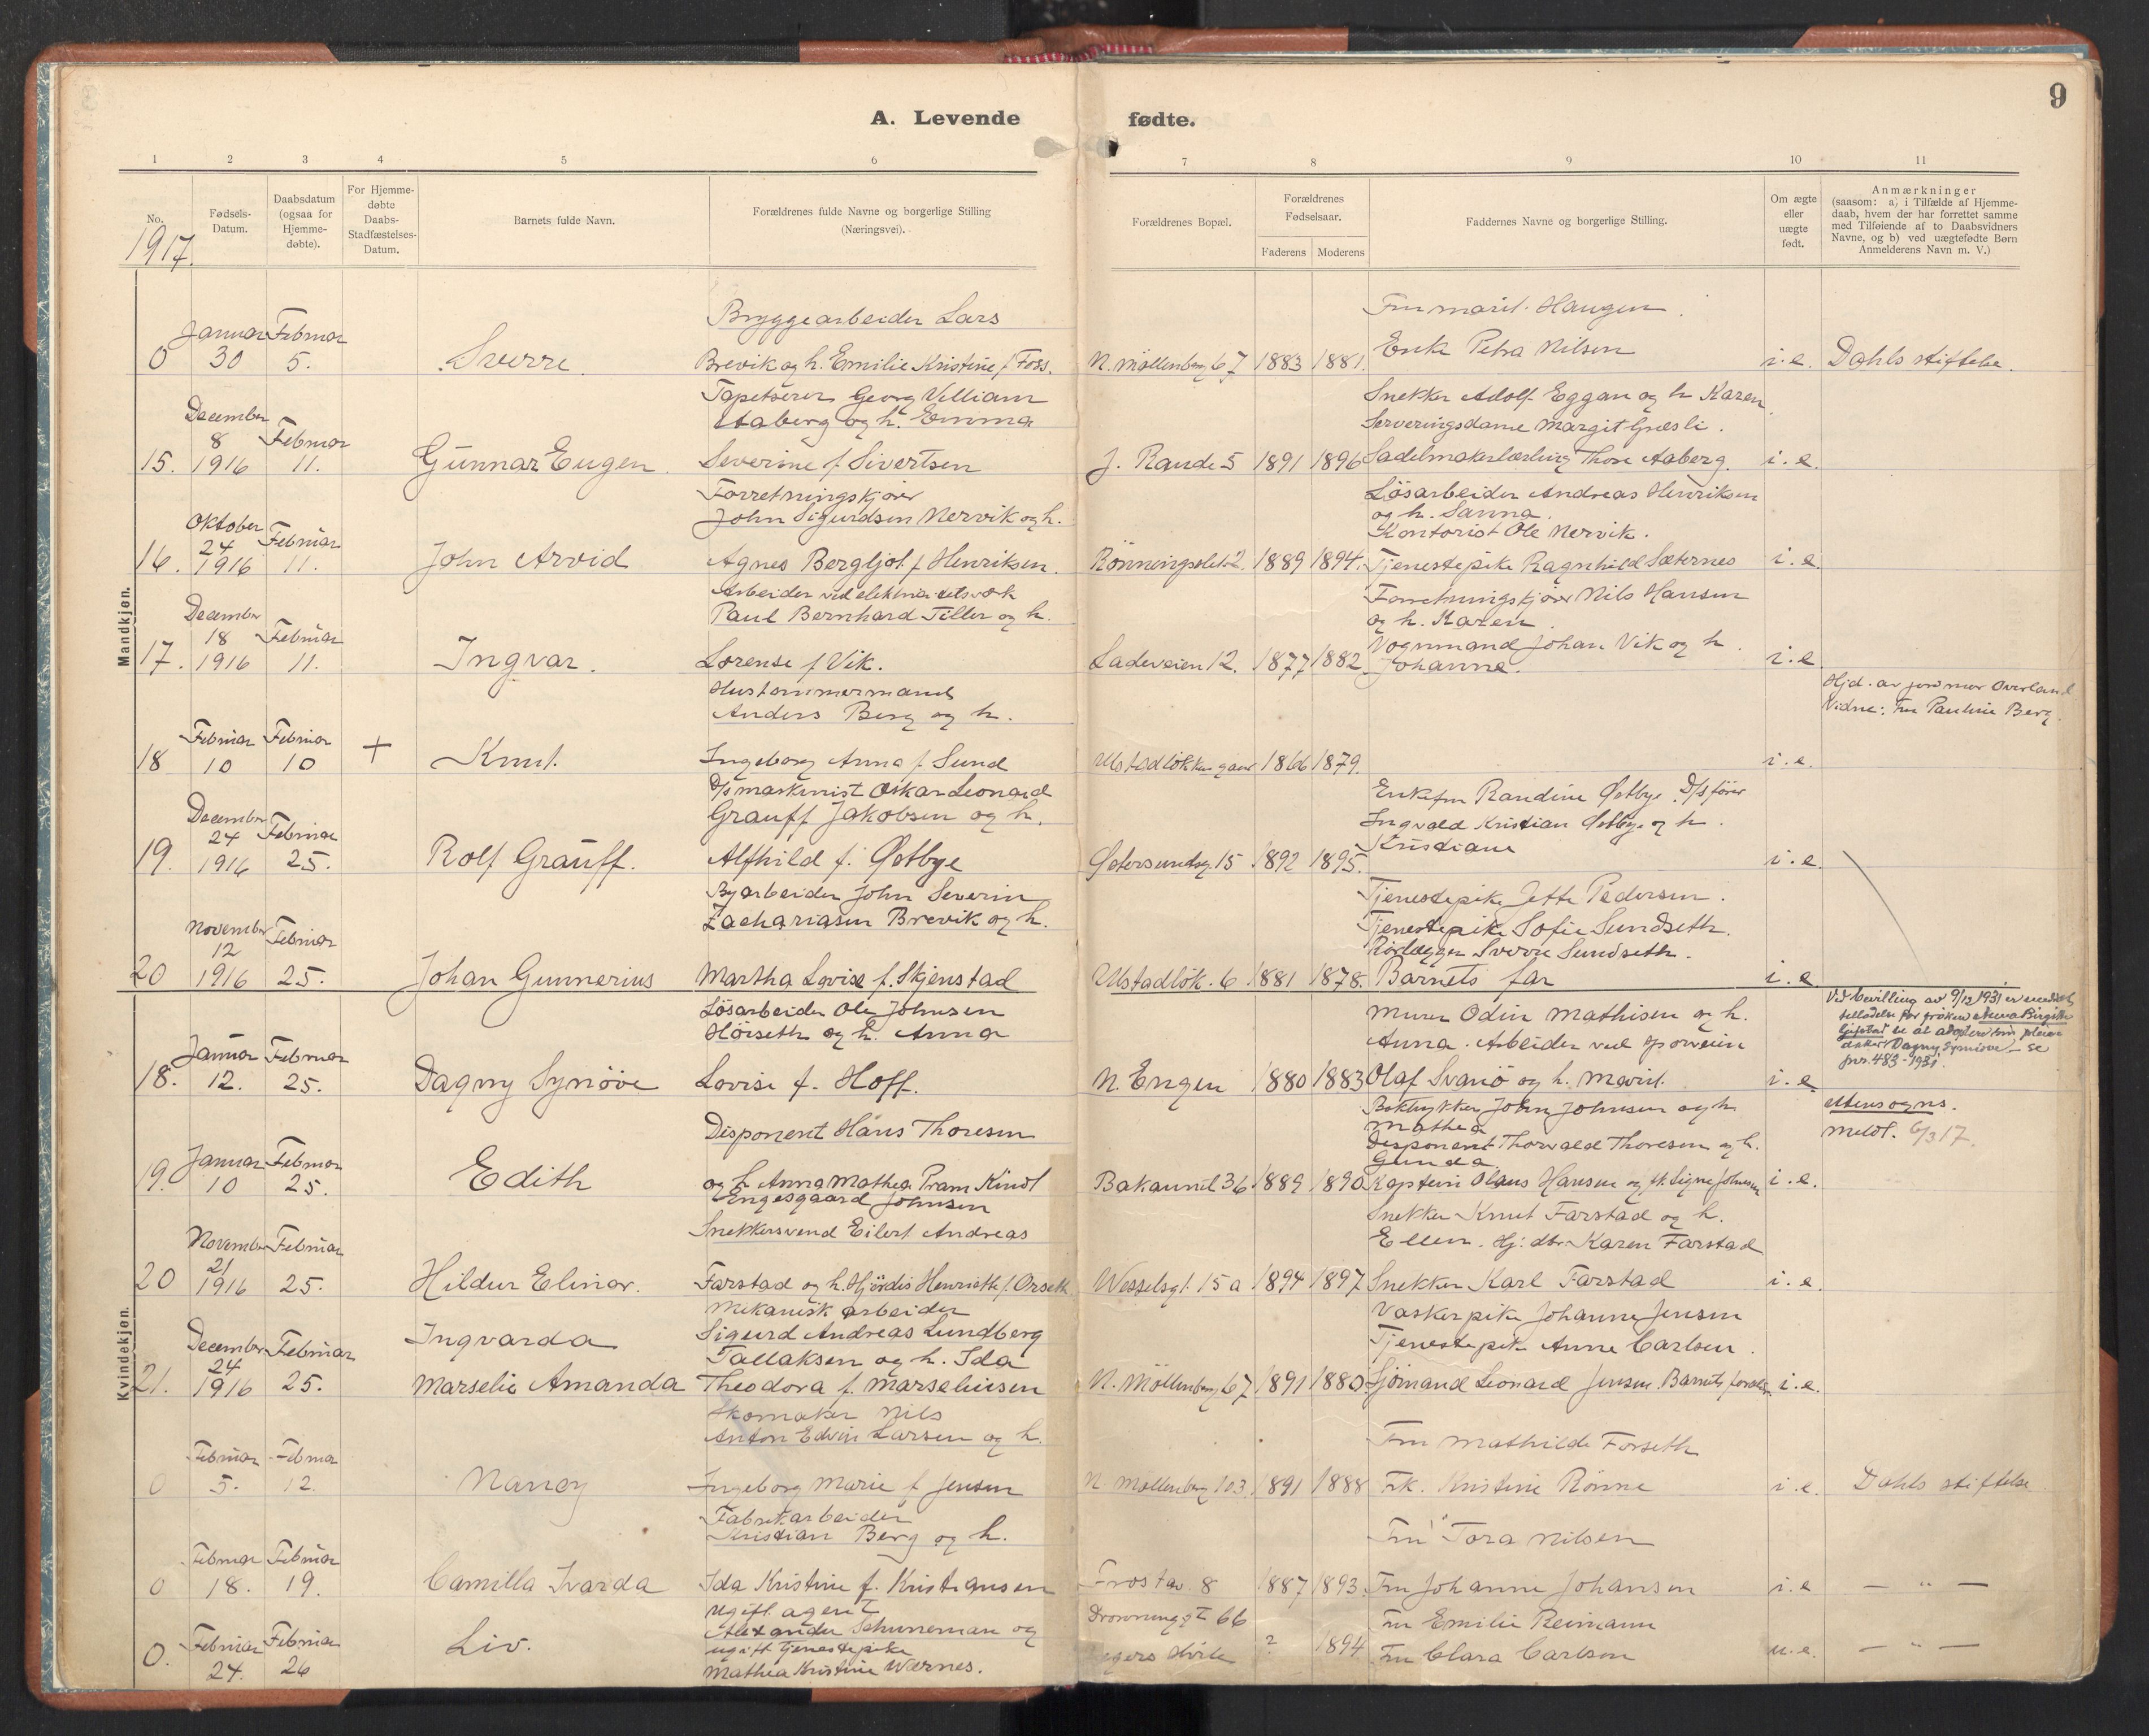 9
A. Levende fødte.
1 2 3 4 5 6 7 8 9 10 11
No.
Fødsels-
Datum.
Daabsdatum
(ogsaa for
Hjemme-
døbte).
For Hjemme-
døbte
Daabs-
Stadfæstelses-
Datum.
Barnets fulde Navn.
Forældrenes fulde Navne og borgerlige Stilling
(Næringsvei).
Forældrenes Bopæl.
Forældrenes
Fødselsaar.
Faderens Moderens
Faddernes Navne og borgerlige Stilling.
Om ægte
eller
uægte
født.
Anmærkninger
(saasom: a) i Tilfælde af Hjemme-
daab, hvem der har forrettet samme
med Tilføiende af to Daabsvidners
Navne, og b) ved uægtefødte Børn
Anmelderens Navn m. V.)
1917.
Mandkjøn.
0
Januar
30
Februar
5.
Sverre
Bryggearbeider Lars
Brevik og h. Emilie Kristine f. Foss.
N. Möllenberg 67
1883 1881.
Fru Marit Haugen
Enke Petra Nilsen
i.e.
Dahls stiftelse.
15.
December
8
1916
Februar
11.
Gunnar Eugen
Tapetserer Georg Villiam
Aaberg og h. Emma
Severine f. Sivertsen
J. Randes 5
1891 1896
Snekker Adolf Eggan og h. Karen
Serveringsdame Margit Græsli.
Sadelmakerlærling Thore Aaberg.
i.e.
16.
Oktober
24
1916
Februar
11.
John Arvid
Forretningskjører
John Sigurdsen Nervik og h.
Agnes Bergljot f. Henriksen.
Rönningslet. 2
1889 1894.
Lösarbeider Andreas Henriksen
og h. Sanna.
Kontorist Ole Nervik.
Tjenestepike Ragnhild Sæternes
i.e.
17.
December
18
1916
Februar
11.
Ingvar.
Arbeider ved elektricitetsverk
Paul Bernhard Tiller og h.
Lorense f. Vik.
Ladeveien 12.
1877 1882
Forretningskjører Nils Hansen
og h. Karen
Vognmand Johan Vik og h.
Johanna.
i.e.
18
Februar
10
Februar
10
+
Knut.
Hustømmermand
Anders Berg og h.
Ingeborg Anna f. Sund
Ulstadlökken
1866 1879.
i.e.
Hjd. av jordmor Overland
Vidne: Fru Pauline Berg.
19.
December
24
1916
Februar
25.
Rolf Grauff.
D/s maskinist Oskar Leonard
Grauff Jakobsen og h.
Alfhild f. Østbye
Østersundsg. 15
1892 1895.
Enkefru Randine Østbye. D/s fører
Ingvald Kristian Østbye og h.
Kristiane
i.e.
20
November
12
1916
Februar
25.
Johan Gunnerius
Byarbeider John Severin
Zachariasen Brevik og h.
Martha Lovise f. Skjenstad
Ulstadlök. 6
1881 1878.
Tjenestepike Jette Pedersen.
Tjenestepike Sofie Sundseth.
Rørlægger Sverre Sundseth.
Barnets far
i.e.
Kvindekjøn.
18.
Januar
12.
Februar
25.
Dagny Synöve
Lösarbeider Ole Johnsen
Höiseth og h. Anna
Lovise f. Hoff.
N. Engen
1880 1883
Murer Odin Mathisen og h.
Anna. Arbeider ved sporveien
Olaf Svanö og h. Marit.
i.e.
Ved bevilling av 9/12 1931 er meddelt
tilladelse for frøken Anna Birgitte
til at adoptere som pleie-
datter Dagny Synnöve – se
jnr. 483-1931.
19.
Januar
10
Februar
25.
Edith
Disponent Hans Thoresen
og h. Anna Mathea Pram Kindt
Engesgaard Johnsen
Bakaunet 36
1889 1890
Boktrykker John Johnsen og h.
Mathea
Disponent Thorvald Thoresen og h.
Gunda.
Kaptein Olaus Hansen og fk. Signe Johnsen
i.e.
Utensogns.
Meldt. 6/3 17.
20
November
21
1916
Februar
25.
Hildur Elinor.
Snekkersvend Eilert Andreas
Farstad og h. Hjördis Henriette f. Orseth
Wesselsgt. 15 a
1894 1897
Snekker Knut Farstad og h.
Ellen. Hj. dtr. Karen Farstad
Snekker Karl Farstad
i.e.
21.
December
24
1916
Februar
25.
Ingvarda
Marselie Amanda
Mekanisk arbeider
Sigurd Andreas Lundberg
Tallaksen og h. Ida
Theodora f. Marseliusen
N. Möllenberg 67
1891 1880
Vaskerpike Johanne Jensen
Tjenestepike Anne Carlsen.
Sjömand Leonard Jensen. Barnets forældre
i.e.
0
Februar
5.
Februar
12.
Nancy
Skomaker Nils
Anton Edvin Larsen og h.
Ingeborg Marie f. Jensen
N. Möllenberg 103.
1891 1888
Fru Mathilde Forseth
Frk. Kristine Rönne
i.e.
Dahls stiftelse
0
Februar
18.
Februar
19.
Camilla Ivarda
Fabrikarbeider
Kristian Berg og h.
Ida Kristine f. Kristiansen
Frostav. 8
1887 1893.
Fru Tora Nilsen
Fru Johanne Johansen
i.e.
— " —
0.
Februar
24.
Februar
26
Liv.
Ugift agent
Alexander Schuneman og
ugift tjenestepike
Mathea Kristine Wærnes.
Dronninggt 66
? 1894
Fru Emilie Reimann
Fru Clara Carlson
u.e.
— " —